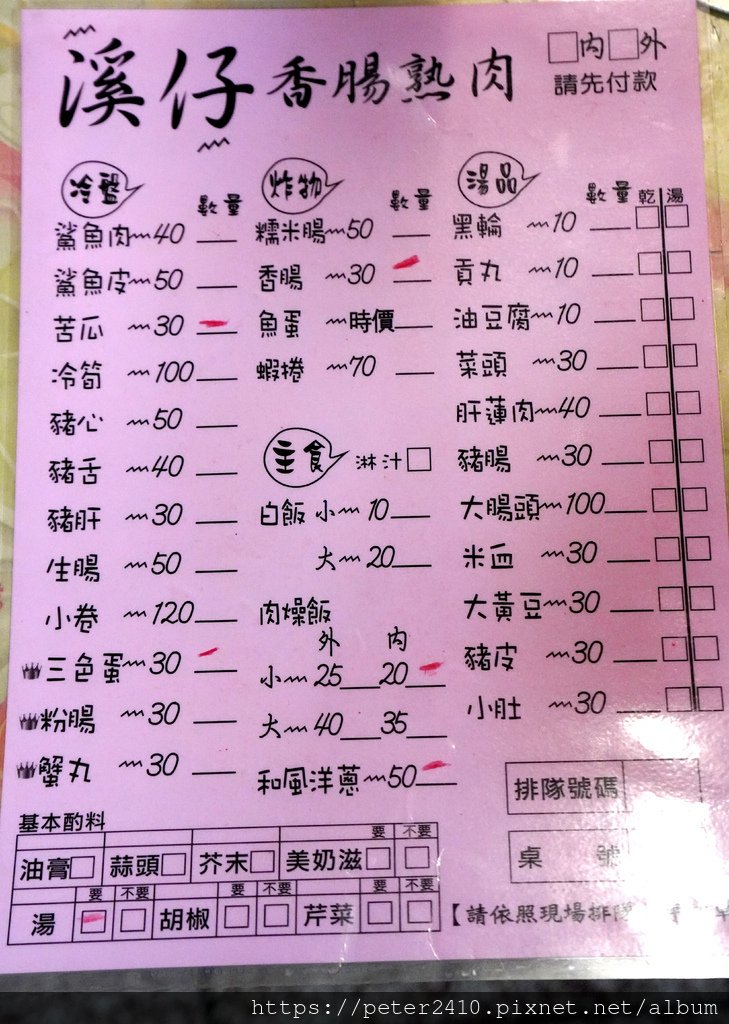 溪仔香腸熟肉
□內□外
請先付款
冷盤 數量
鯊魚肉~40
鯊魚皮~50
苦瓜~30
冷筍~100
豬心~50
豬舌~40
豬肝~30
生腸~50
小卷~120
三色蛋~30
粉腸~30
蟹丸~30
炸物 數量
糯米腸~50
香腸~30
魚蛋~時價
蝦捲~70
主食 淋汁□
白飯 小~10
大~20
肉燥飯
外 內
小~25 20
大~40 35
和風洋蔥~50
湯品 數量 乾 湯
黑輪~10 □ □
貢丸~10 □ □
油豆腐~10 □ □
菜頭~30 □ □
肝蓮肉~40 □ □
豬腸~30 □ □
大腸頭~100 □ □
米血~30 □ □
大黃豆~30 □ □
豬皮~30 □ □
小肚~30 □ □
基本酌料
要 不要
油膏□ 蒜頭□ 芥末□ 美奶滋□ □
要 不要 要 不要 要 不要
湯□ □ 胡椒□ □ 芹菜□ □
排隊號碼
桌號
【請依照現場排隊
https://peter2410.pixnet.net/album